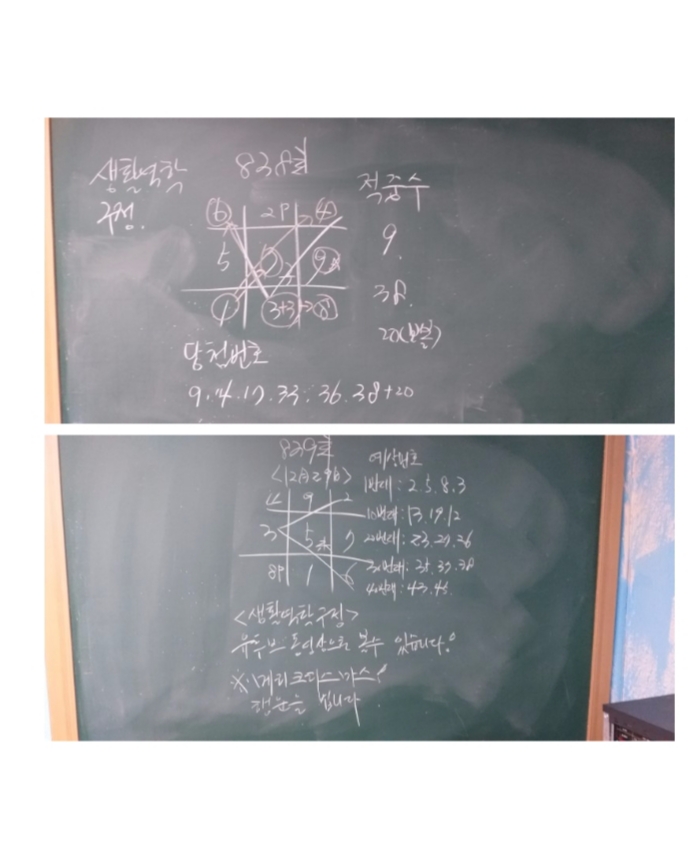 생활역학 838회 적중수
구정.
6 2P 4
5 7 9
1 3+3+2 8
9.
38.
20(보볼)
당첨번호
9.4.17.33.36.38+20
839회
<12月29日> 예상번호
4 9 2 1번대: 2.5.8.3
10번대: 13.19.12
3 5 7 20번대: 23.29.26
30번대: 35.37.38
8P 1 6 40번대: 43.45.
<생활역학구정>
유투브 동영상으로 볼수 있습니다.
행운을 빕니다